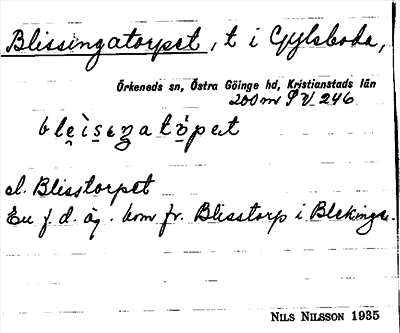 Blissingatorpet, t i Gylsboda,
Örkeneds sn, Östra Göinge hd, Kristianstads län
200 m S V 246
ble̯ìsen̥gatǫ́pet
el. Blisstorpet
En f. d. äg. kom fr. Blisstorp i Blekinge.
NILS NILSSON 1935